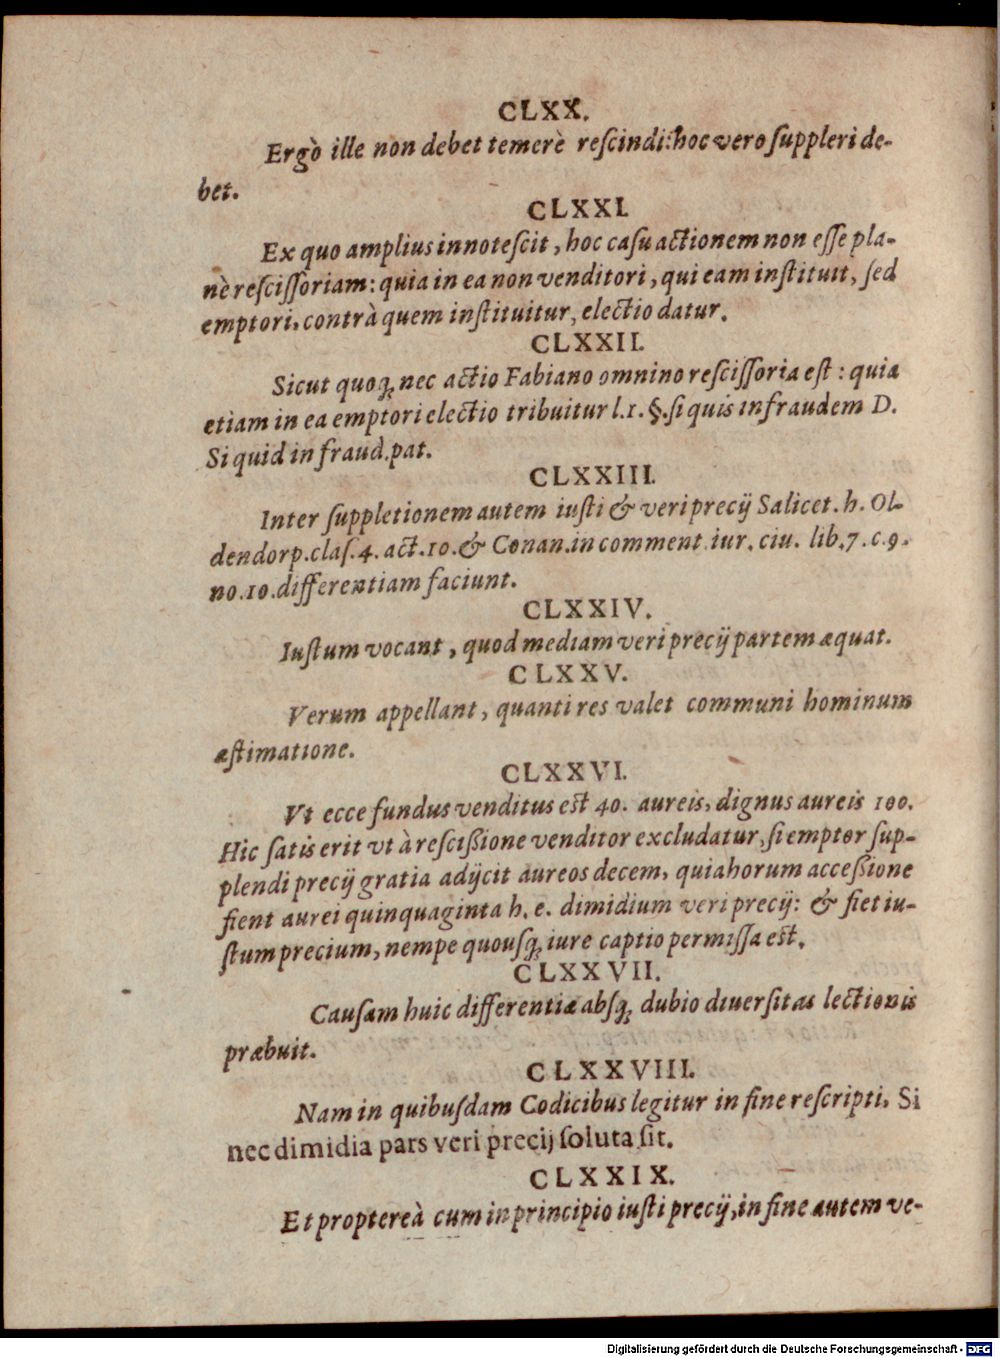 CLXX.
Ergò ille non debet temerè reſcindi: hoc vero ſuppleri de-
bet.
CLXXI.
Ex quo amplius innoteſcit, hoc caſu actionem non eſſe pla-
nè reſciſſoriam: quia in ea non venditori, qui eam inſtituit, ſed
emptori, contrà quem inſtituitur, electio datur.
CLXXII.
Sicut quoq; nec actio Fabiano omnino reſciſſoria eſt: quia
etiam in ea emptori electio tribuitur l.1. §. ſi quis in fraudem D.
Si quid in fraud. pat.
CLXXIII.
Inter ſuppletionem autem iuſti & veri precij Salicet. h. Ol-
dendorp. claſ. 4. act. 10. & Conan. in comment. iur. ciu. lib. 7. c. 9.
no. 10. differentiam faciunt.
CLXXIV.
Iuſtum vocant, quod mediam veri precij partem æquat.
CLXXV.
Verum appellant, quanti res valet communi hominum
æſtimatione.
CLXXVI.
Vt ecce fundus venditus eſt 40. aureis, dignus aureis 100.
Hic ſatis erit vt à reſciſsione venditor excludatur, ſi emptor ſup-
plendi precij gratia adijcit aureos decem, quia horum acceſsione
fient aurei quinquaginta h. e. dimidium veri precij: & fiet iu-
ſtum precium, nempe quouſq; iure captio permiſſa eſt.
CLXXVII.
Cauſam huic differentiæ abſq; dubio diuerſitas lectionis
præbuit.
CLXXVIII.
Nam in quibuſdam Codicibus legitur in fine reſcripti, Si
nec dimidia pars veri precij ſoluta ſit.
CLXXIX.
Et proptereà cum in principio iuſti precij, in fine autem ve-
Digitalisierung gefördert durch die Deutsche Forschungsgemeinschaft - DFG